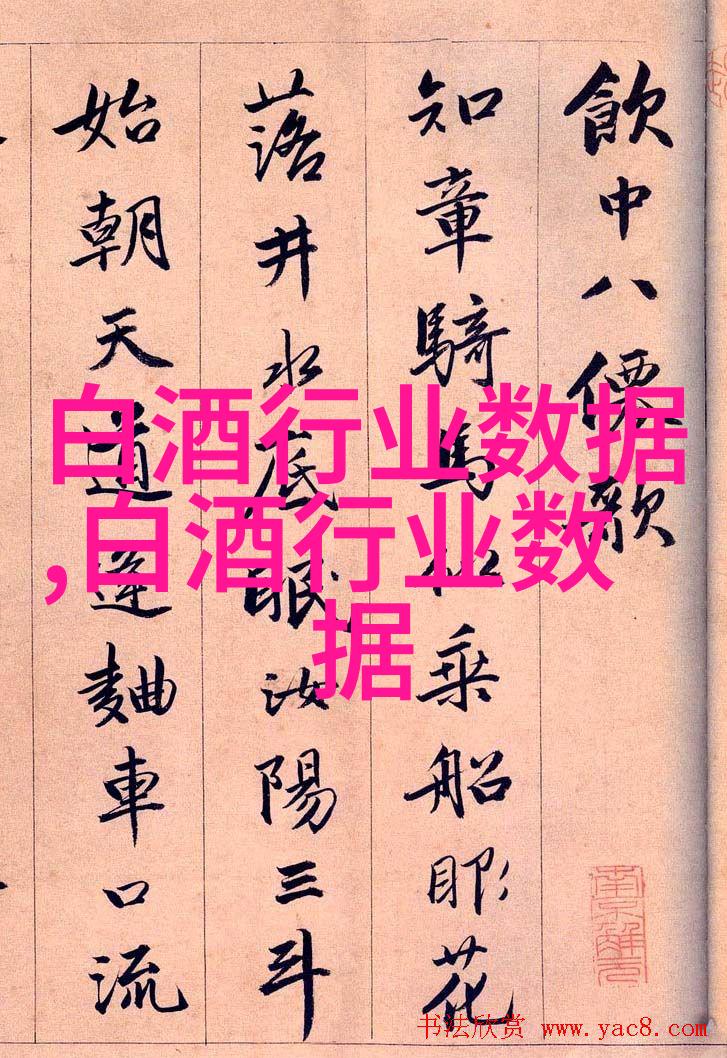 飲中八僊歌
知章騎馬似乘船眼花
落井水底眠汝陽三斗
始朝天道逢麯車口流
白酒行业数据
,白酒行业数
据
南京解元
书法欣赏 www.yac8.com